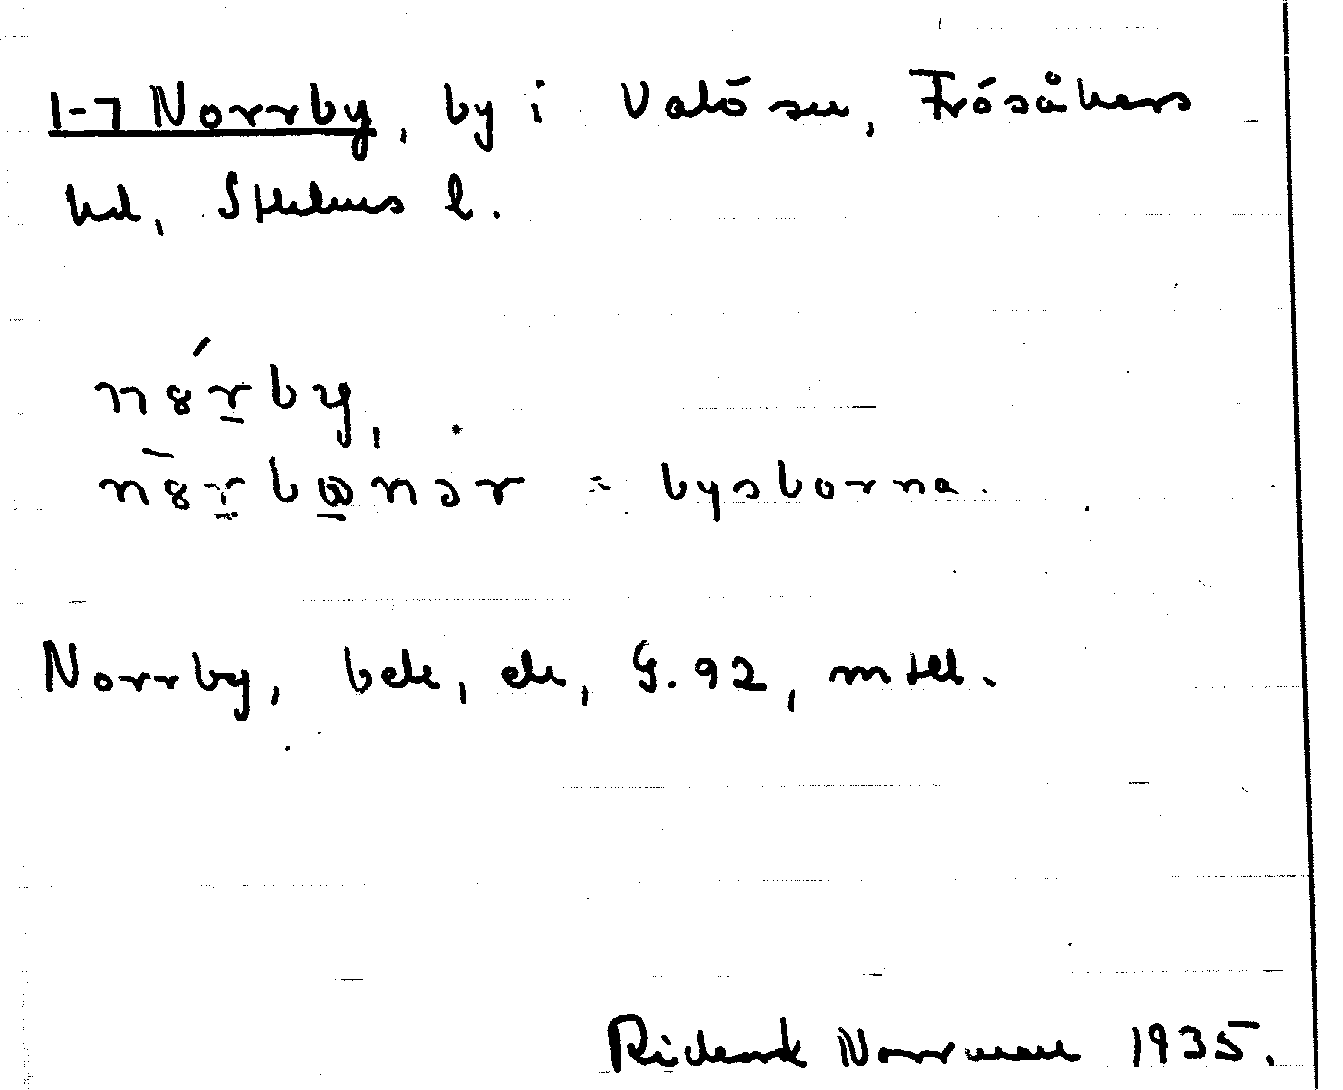 1-7 Norrby, by i Valö sn, Frösåkers
hd, Sthlms l.
nȣ́r̲by,
nȣ̄r̲bꞷ̲nər = bysborna.
Norrby, bek, ek, G. 92, mtll.
Rickard Norrman 1935.